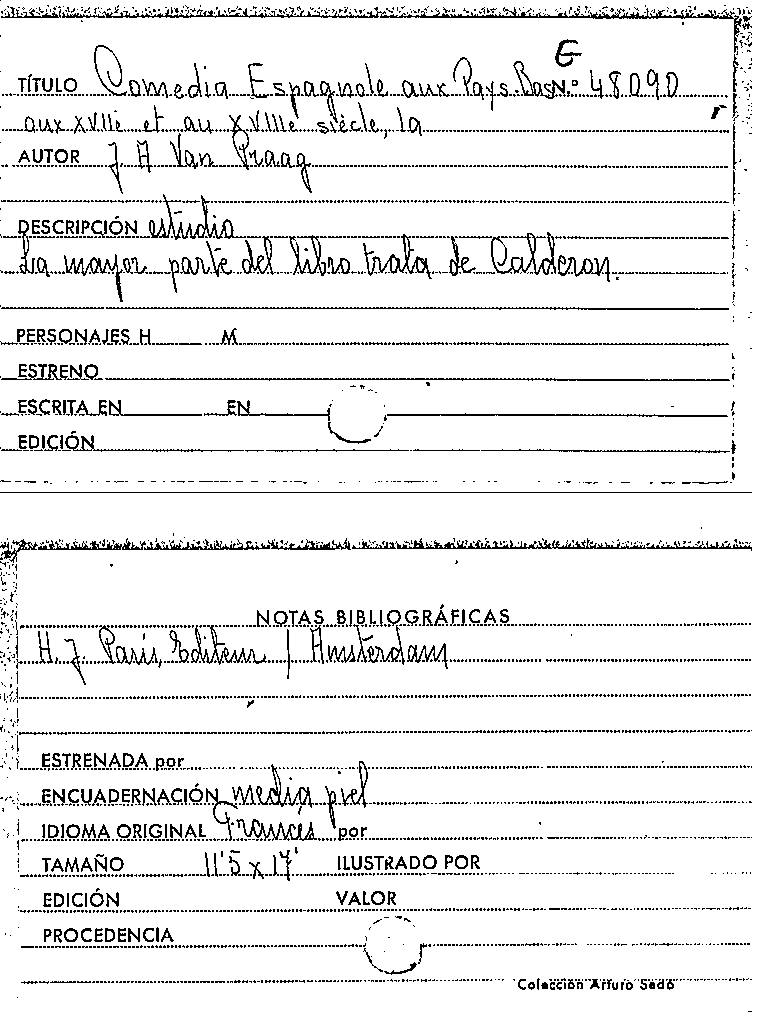 G
TÍTULO Comedia Espagnole aux Pays-Bas N.º 48090
aux XVIIè et au XVIIIè siècle, la
AUTOR J. A Van Praag
DESCRIPCIÓN estudio
La mayor parte del libro trata de Calderon.
PERSONAJES H M
ESTRENO
ESCRITA EN EN
EDICIÓN
NOTAS BIBLIOGRÁFICAS
H. J. Paris, Editeur / Amsterdam
ESTRENADA por
ENCUADERNACIÓN media piel
IDIOMA ORIGINAL Francés por
TAMAÑO 11'5 x 17' ILUSTRADO POR
EDICIÓN VALOR
PROCEDENCIA
Colección Arturo Sedó